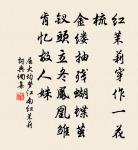 红茉莉穿作一花
梳
金缕抽残蝴蝶茧
钗头立尽凤凰雏
肯忆故人姝
屈大均梦江南红茉莉